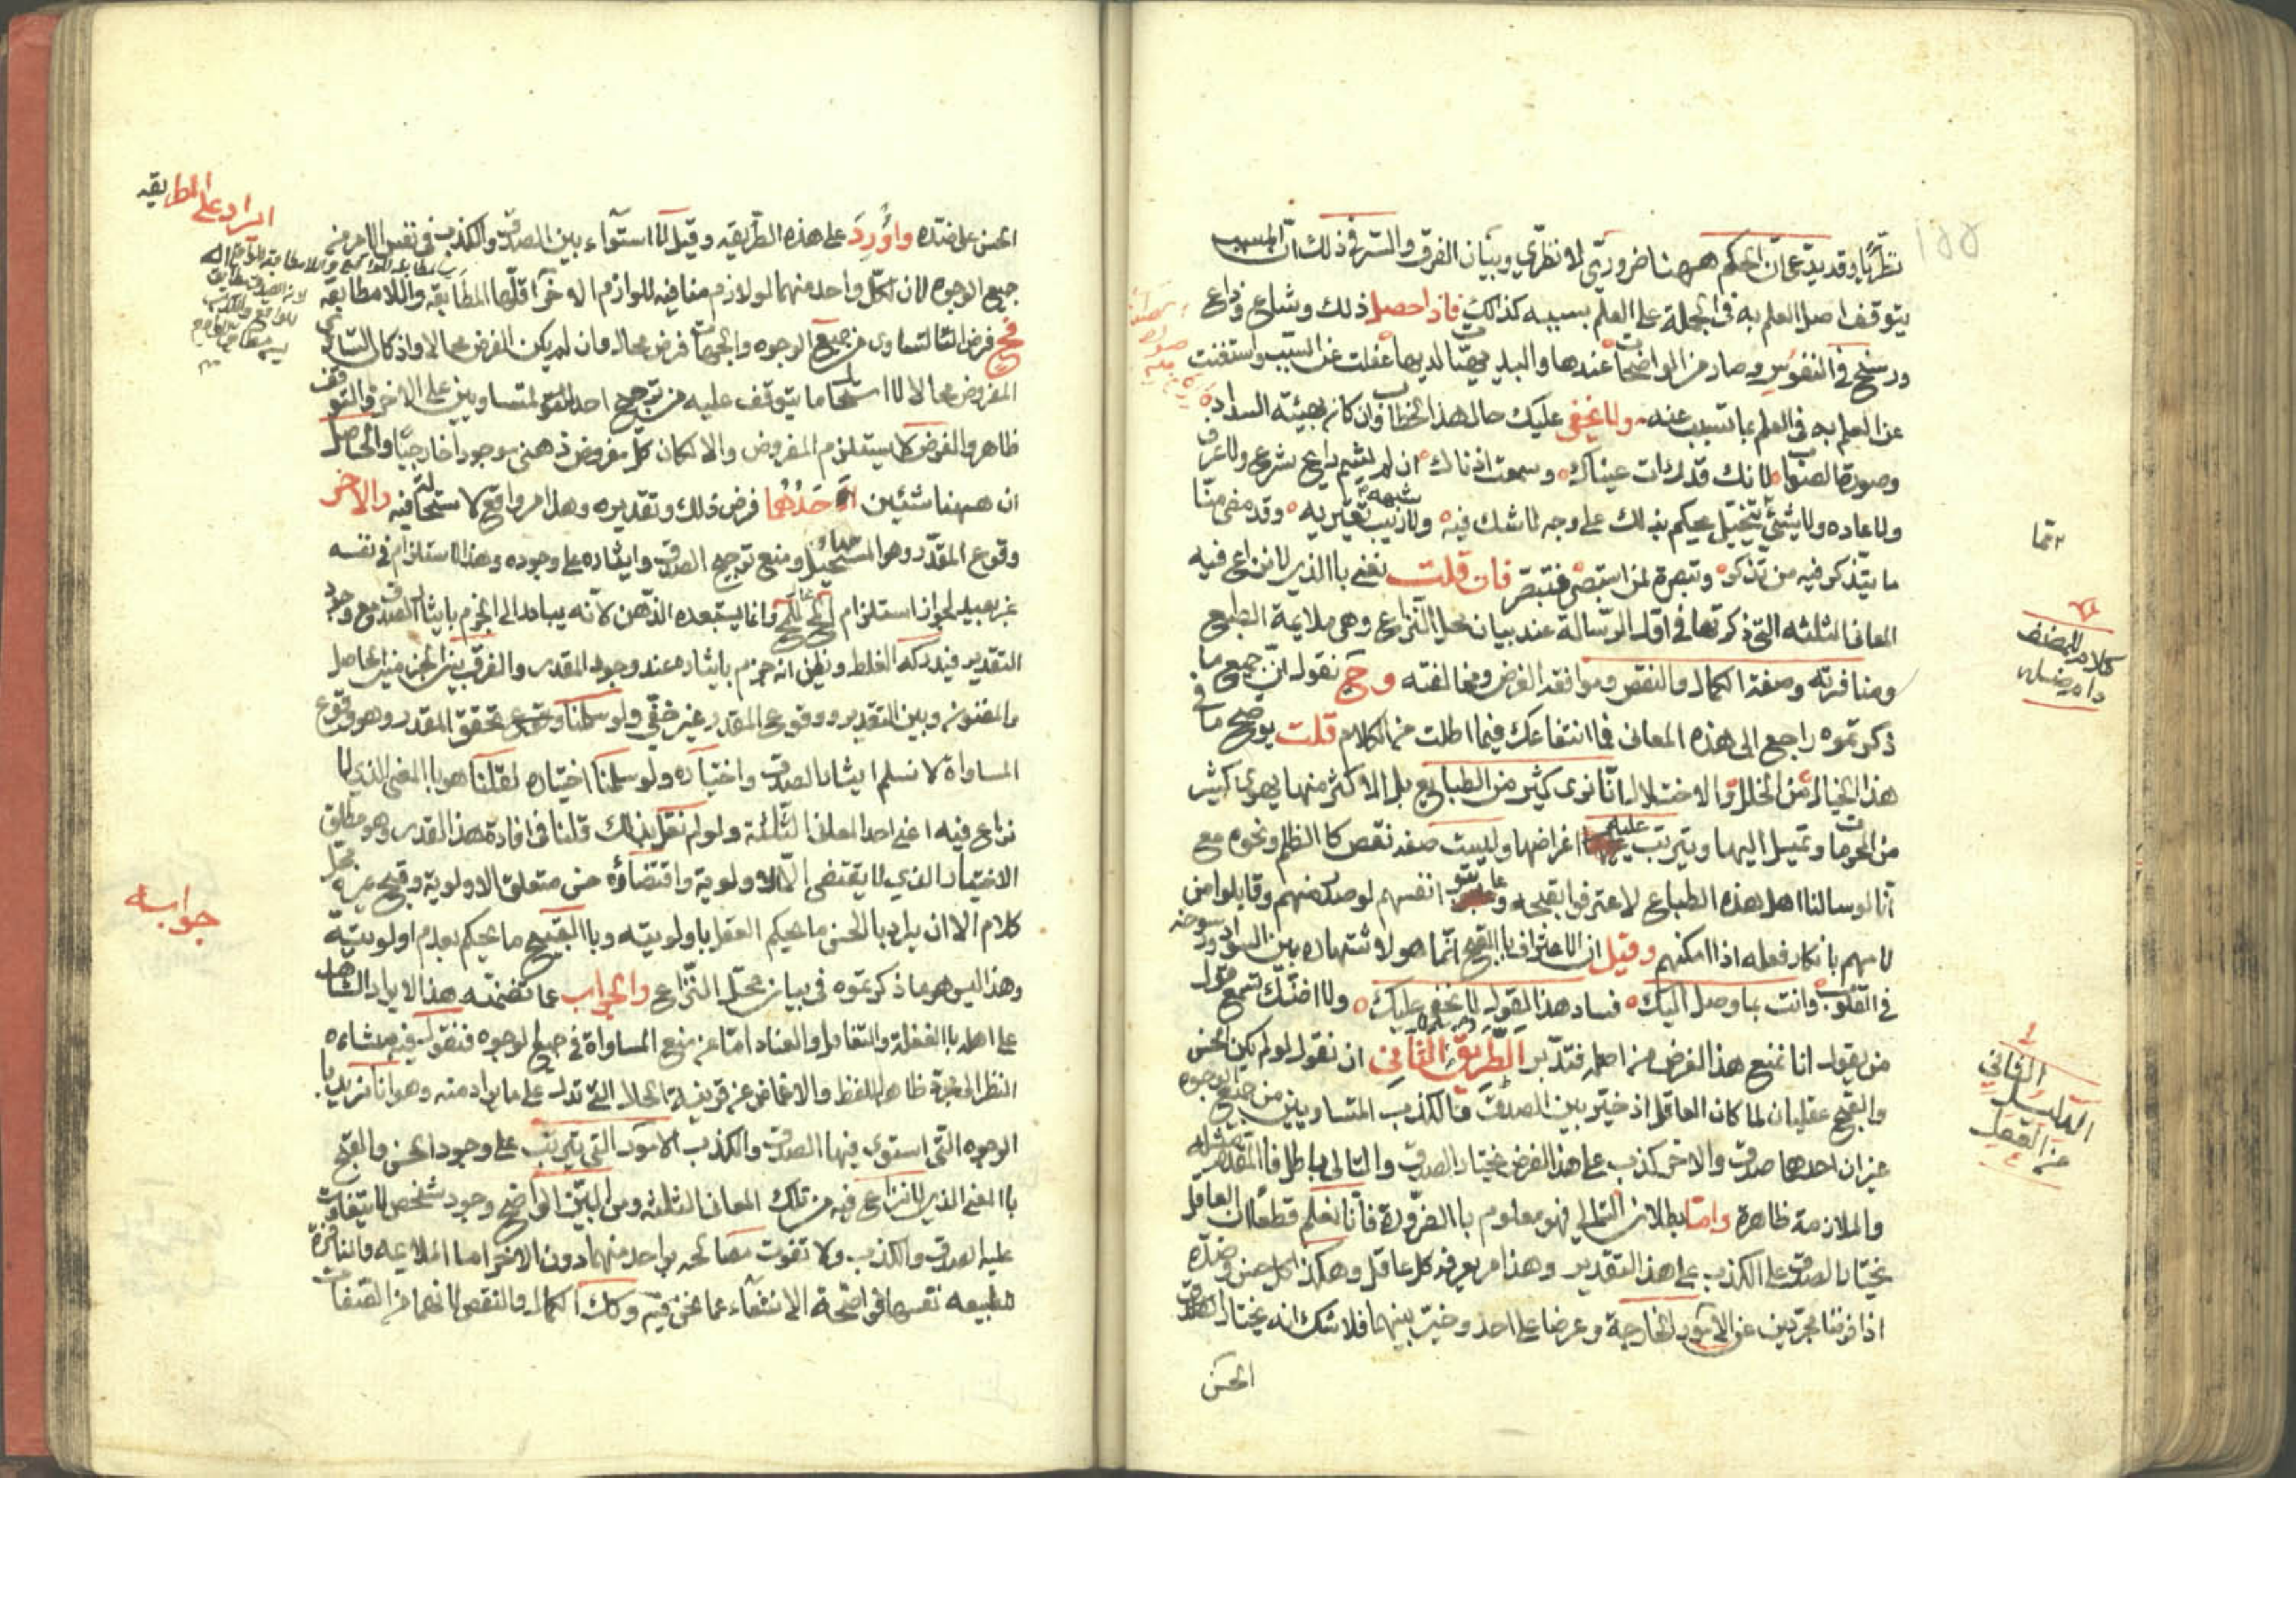 نظريا وقد يدعى ان الحكم ههنا ضروري لا نظري وبيان الفرق والسر في ذلك ان المسبب
يتوقف اصل العلم به في الجملة على العلم بسببه كذلك فاذا حصل ذلك وشاع وذاع
ورسخ في النفوس وصار من الواضحات عندها والبديهيات لديها غفلت عن السبب واستغنت
عن العلم به في العلم بما تسبب عنه ولا يخفى عليك حال هذا الخطاب وان كان بهيئة السداد
وصورة الصواب لانك قد رات عيناك وسمعت اذناك ان لم يشبه داعي شرع ولا عرف
ولا عاده ولا شيئ يتخيل يحكم بذلك على وجه لا شك فيه ولا ريب شبهة تعتريه وقد مضى منا
ما يتذكر فيه من تذكر وتبصرة لمن استبصر فتبصر فان قلت نعني بالذي لا نزاع فيه
المعاني الثلثه التي ذكرتها في اول الرسالة عند بيان محل النزاع وهي ملايمة الطبع
ومنافرته وصفة الكمال والنقص وموافقة الغرض ومخالفته وح نقول ان جميع ما
ذكرتموه راجع الى هذه المعاني فما انتفاعك فيما اطلت من الكلام قلت يوضح ما في
هذا الخيال من الخلل والاختلال انا نرى كثير من الطبايع بل الاكثر منها يهوى كثير
من المحرمات وتميل اليها ويترتب عليه اغراضها وليست صفة نقص كالظلم ونحوه مع
انا لو سالنا اهل هذه الطباع لاعترفوا بقبحه وعاتبتوا انفسهم لو صدر منهم وقابلوا من
لامهم بانكار فعله اذا امكنهم وقيل ان الاعتراف بالقبح انما هو لاشتهاره بين السواد ورسوخه
في القلوب وانت بما وصل اليك فساد هذا القول لا يخفى عليك ولا اضنك تسمع قول
من يقول انا نمنع هذا الفرض من اصله فتدبر الطريق الثاني ان نقول لو لم يكن الحسن
والقبح عقليان لما كان العاقل اذ خير بين الصدق والكذب المتساويين من جميع الوجوه
غير ان احدهما صدق والاخر كذب على هذا الفرض يختار الصدق والتالي باطل فالمقدم مثله
والملازمة ظاهرة واما بطلان التالي فهو معلوم بالضرورة فانا نعلم قطعا ان العاقل
يختار الصدق على الكذب على هذا التقدير وهذا امر يعرفه كل عاقل وهكذا كل حسن وضده
اذا فرضنا مجردين عن الامور الخارجة وعرضا على احد وخير بينهما فلا شك انه يختار الصدق
الحسن
١٥٥
كلام المصنف
دام فضله
الدليل الثاني
من العقل
الحسن على ضده واورد على هذه الطريقه وقيل لا استواء بين الصدق والكذب في نفس الامر من
جميع الوجوه لان لكل واحد منهما لو لازم منافيه للوازم الاخر اقلها المطابقه واللامطابقة
فح فرض التساوي من جميع الوجوه والجهات فرض محال وان لم يكن الفرض محالا واذ كان التساوي
المفروض محالا لا استحال ما يتوقف عليه من ترجيح احد المتساويين على الاخر والتوقف
ظاهر والفرض لا يستلزم المفروض والا لكان كل مفروض ذهني موجودا خارجيا والحاصل
ان ههنا شيئين احدهما فرض ذلك وتقديره وهذا امر واقع لا استحالة فيه والاخر
وقوع المقدر وهو المستحيل ومنع ترجيح الصدق وايثاره على وجوده وهذا الاستلزام في نفسه
غير بعيد لجواز استلزام المحال المحال وانما يستبعده الذهن لانه يبادر الى الجزم بايثار الصدق مع وجود
التقدير فيدركه الغلط ويظن انه جزم بايثاره عند وجود المقدر والفرق بين الجزمين الحاصل
والمظنون وبين التقدير ووقوع المقدر غير خفي ولو سلمنا وتحقق المقدر وهو وقوع
المساواة لا نسلم ايثار الصدق واختياره ولو سلمنا اختياره لقلنا هو بالمعنى الذي لا
نزاع فيه اعني احد المعاني الثلثة ولو لم نقل بذلك قلنا في افادة هذا القدر وهو مطلق
الاختيار الذي لا يقتضى الا الاولوية واقتضاؤه حسن متعلق الاولوية وقبح غيره محل
كلام الا ان يراد بالحسن ما يحكم العقل باولويته وبالقبيح ما يحكم بعدم اولويته
وهذا ليس هو ما ذكرتموه في بيان محل النزاع والجواب عما تضمنه هذا الايراد الشاهد
على اهله بالغفلة والتغافل والعناد اما عن منع المساواة في جميع الوجوه فنقول فيه منشاءه
النظر الى مجرد ظاهر اللفظ والاغماض عن قرينة الحال التي تدل على ما يراد منه وهو انا نريد با
الوجوه التي استوى فيها الصدق والكذب الامور التي يترتب على وجود الحسن والقبح
بالمعنى الذي لا نزاع فيه من تلك المعاني الثلثة ومن البين الواضح وجود شخص لا يتفاوت
عليه الصدق والكذب ولا تفوت مصالحه بواحد منهما دون الاخر اما الملايمه والمنافرة
للطبيعه نفسها فواضحة الانتفاء عما نحن فيه وكذلك الكمال والنقص لانهما من الصفات
ايراد على الطريقه
جوابه